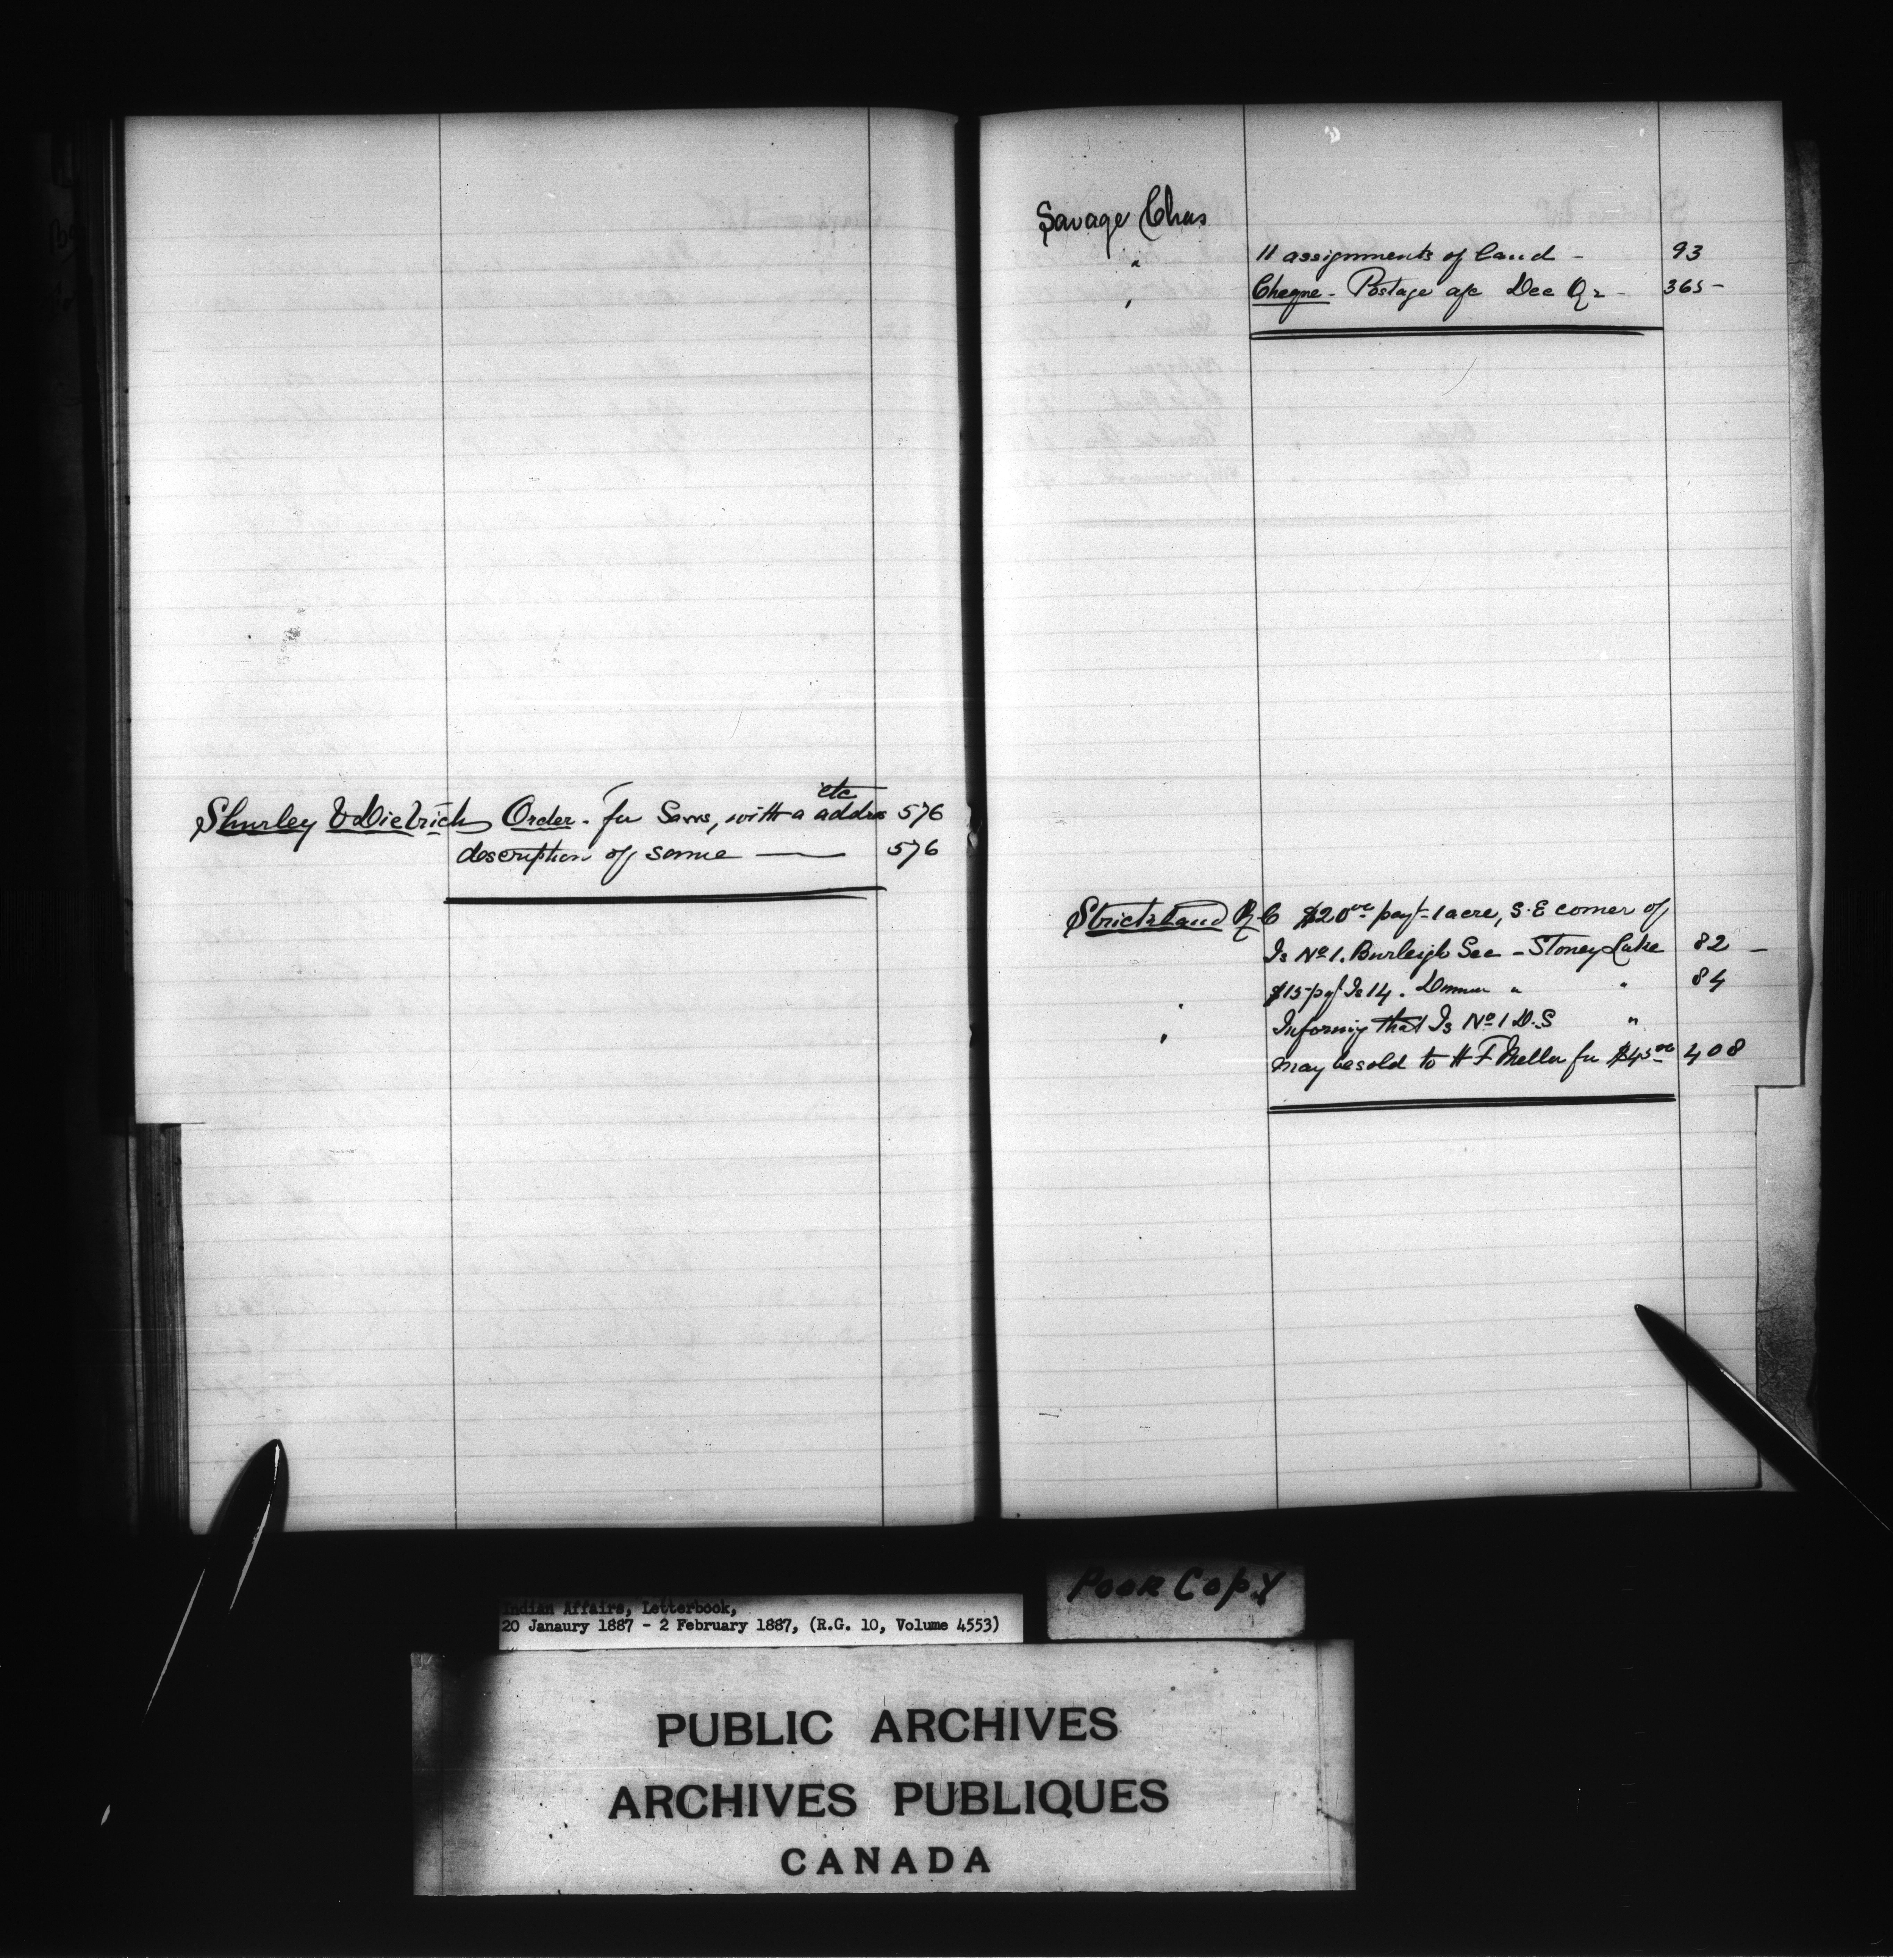 etc
Shurley & Dietrich Order - for Saws, with a addres 576
description of same — 576
Savage Chas
" 11 assignments of land - 93
" Cheque - Postage a/c Dec Qr - 365 -
Strickland R C $20 00 payt - 1 acre, S.E corner of
Is No 1. Burleigh Sec - Stoney Lake 82 -
" $15 pyt Is 14. Dummer " " 84
" Informing that Is No 1 D.S "
may be sold to H F for $45 00 408
Poor Copy
Indian Affairs, Letterbook,
20 Janaury 1887 - 2 February 1887, (R.G. 10, Volume 4553)
PUBLIC ARCHIVES
ARCHIVES PUBLIQUES
CANADA